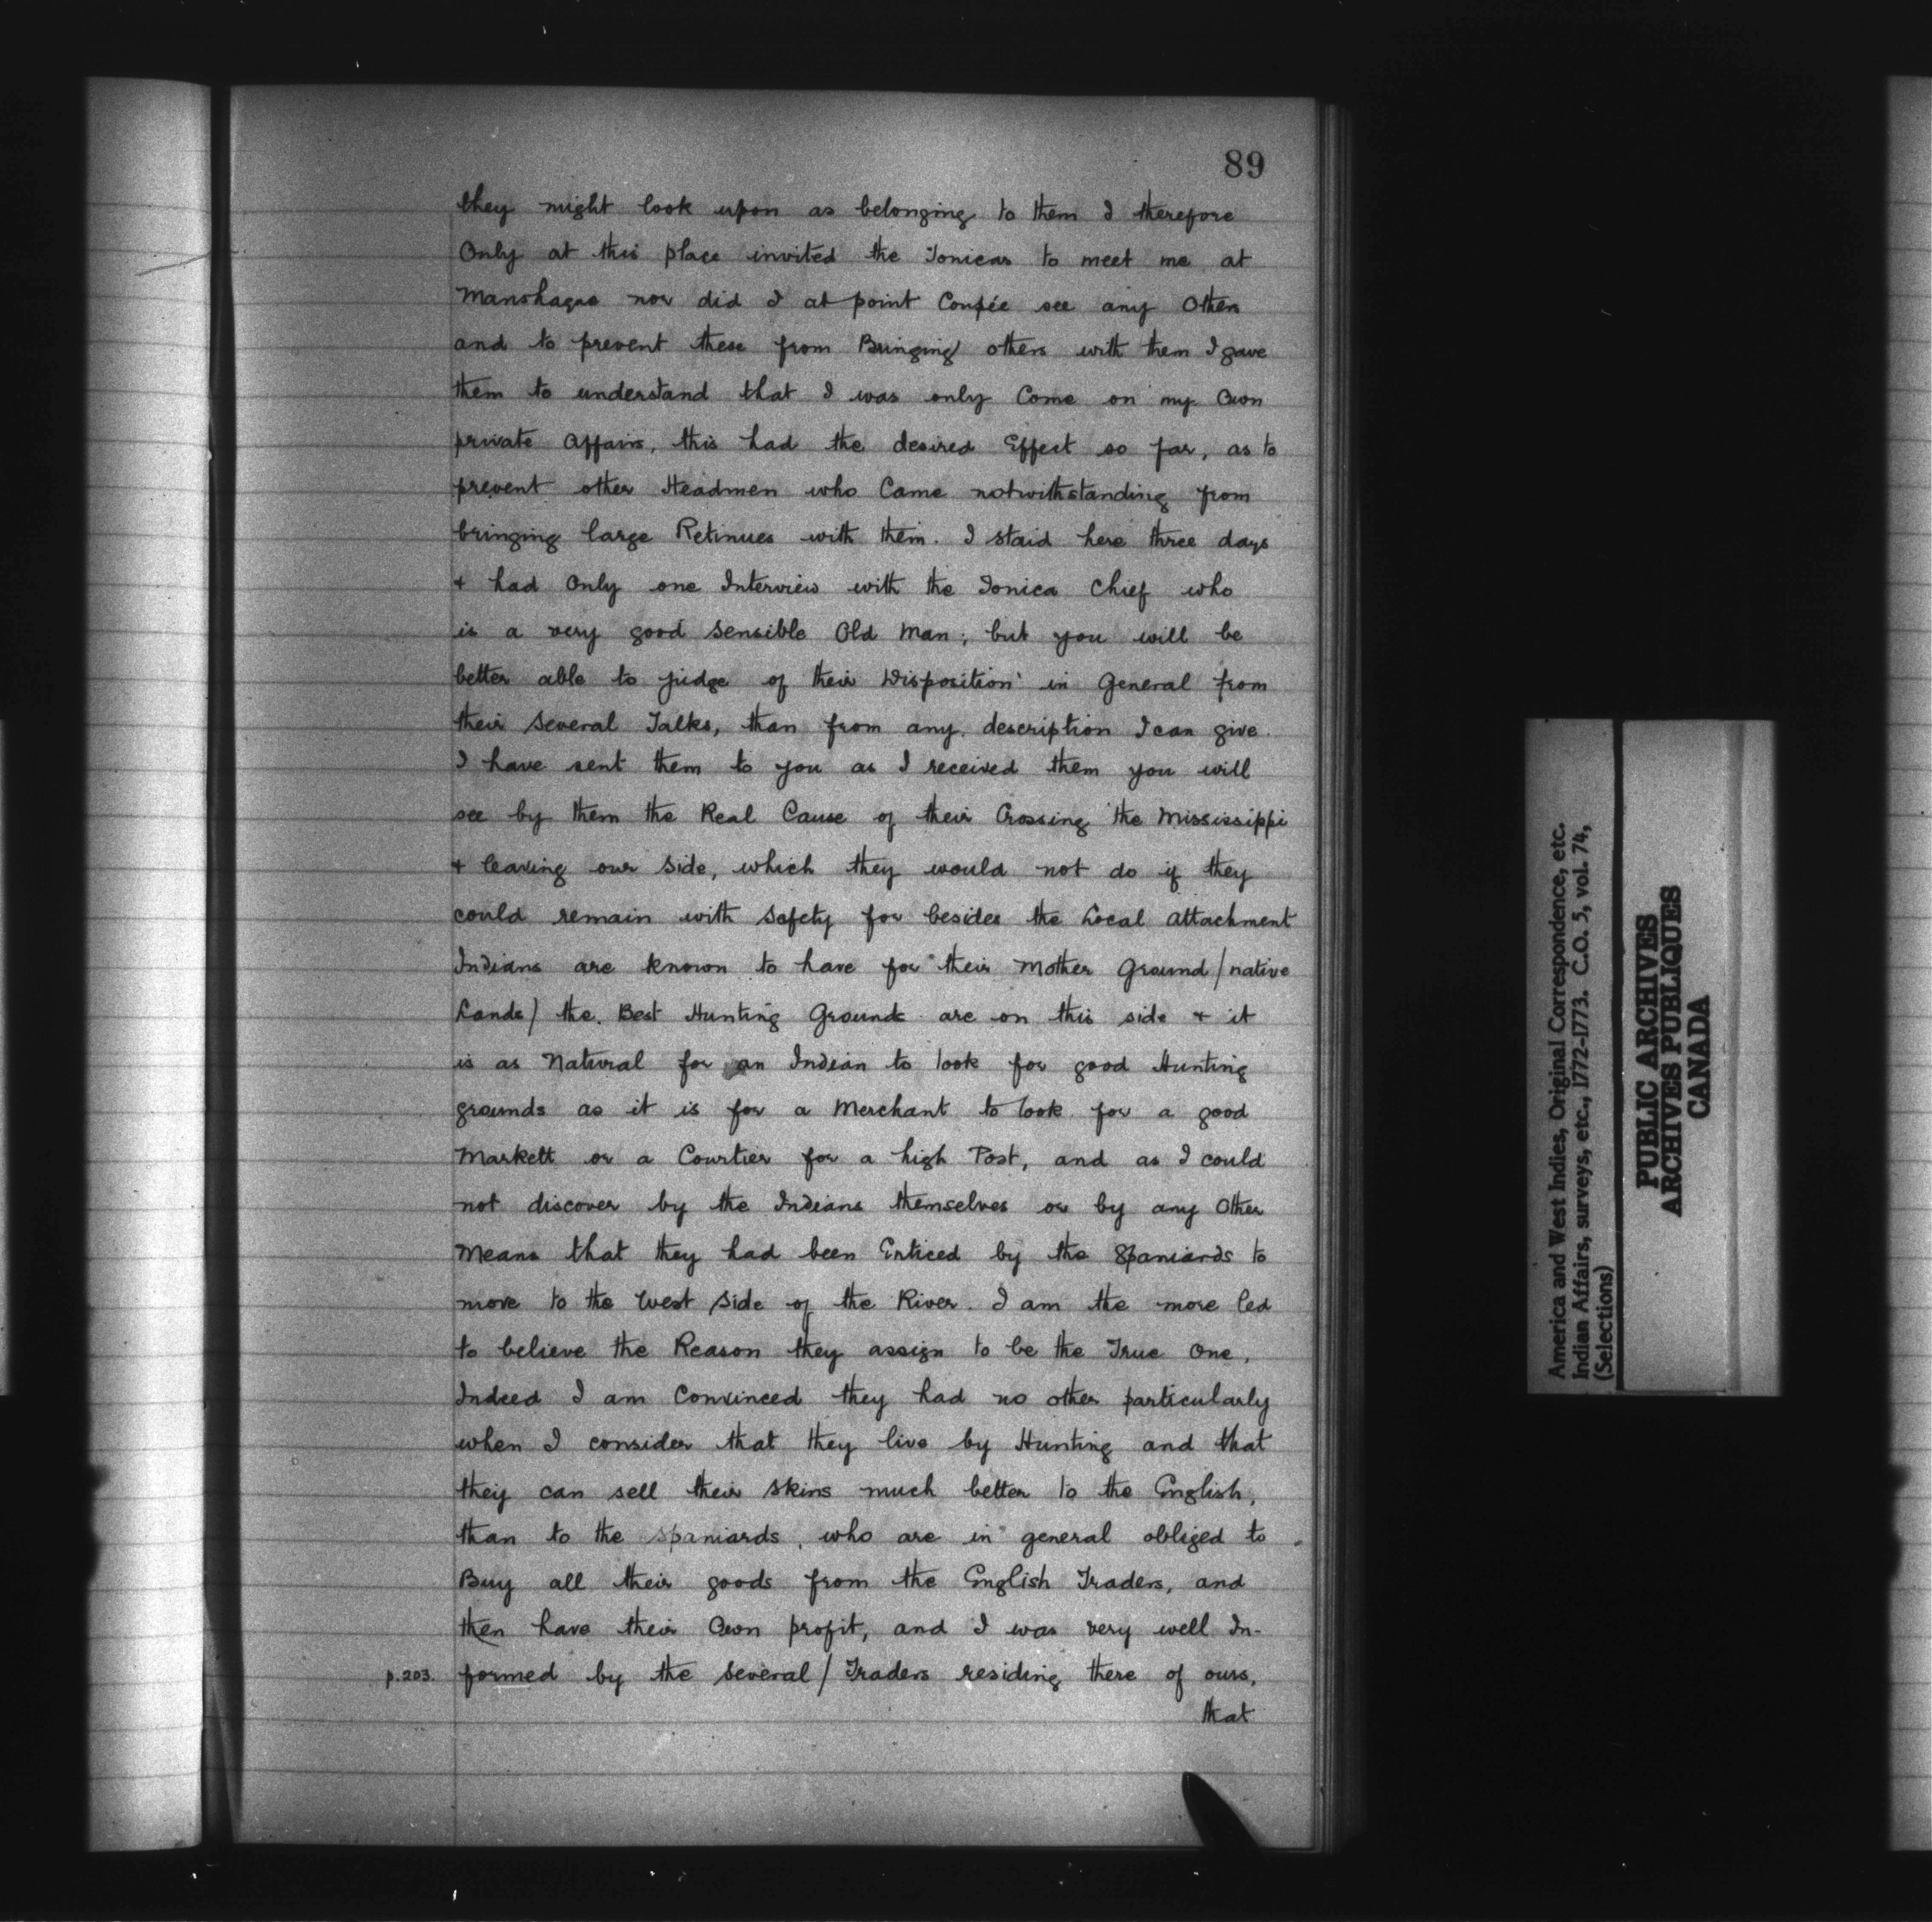 89
they might look upon as belonging to them I therefore
Only at this place invited the Tonicas to meet me at
Manshaque nor did I at point Coupée see any Others
and to prevent these from Bringing others with them I gave
them to understand that I was only Come on my Own
private Affairs, this had the desired Effect so far, as to
prevent other Headmen who Came notwithstanding from
bringing large Retinues with them. I staid here three days
& had Only one Interview with the Tonica Chief who
is a very good sensible Old Man; but you will be
better able to judge of their Disposition in General from
their several Talks, than from any description I can give.
I have sent them to you as I received them you will
see by them the Real Cause of their Crossing the Mississippi
& leaving our side, which they would not do if they
could remain with safety for besides the Local attachment
Indians are known to have for their Mother Ground / native
Lands) the Best Hunting Grounds are on this side & it
is as Natural for an Indian to look for good Hunting
grounds as it is for a Merchant to look for a good
Markett or a Courtier for a high Post, and as I could
not discover by the Indians themselves or by any Other
Means that they had been Enticed by the Spaniards to
move to the West Side of the River. I am the more led
to believe the Reason they assign to be the True One,
Indeed I am Convinced they had no other particularly
when I consider that they live by Hunting and that
they can sell their skins much better to the English,
than to the Spaniards, who are in general obliged to
Buy all their goods from the English Traders, and
then have their Own profit, and I was very well In-
p.203. formed by the several / Traders residing there of ours,
that
America and West Indies, Original Correspondence, etc.
Indian Affairs, surveys, etc., 1772-1773. C.O. 5, vol. 74,
(Selections)
PUBLIC ARCHIVES
ARCHIVES PUBLIQUES
CANADA